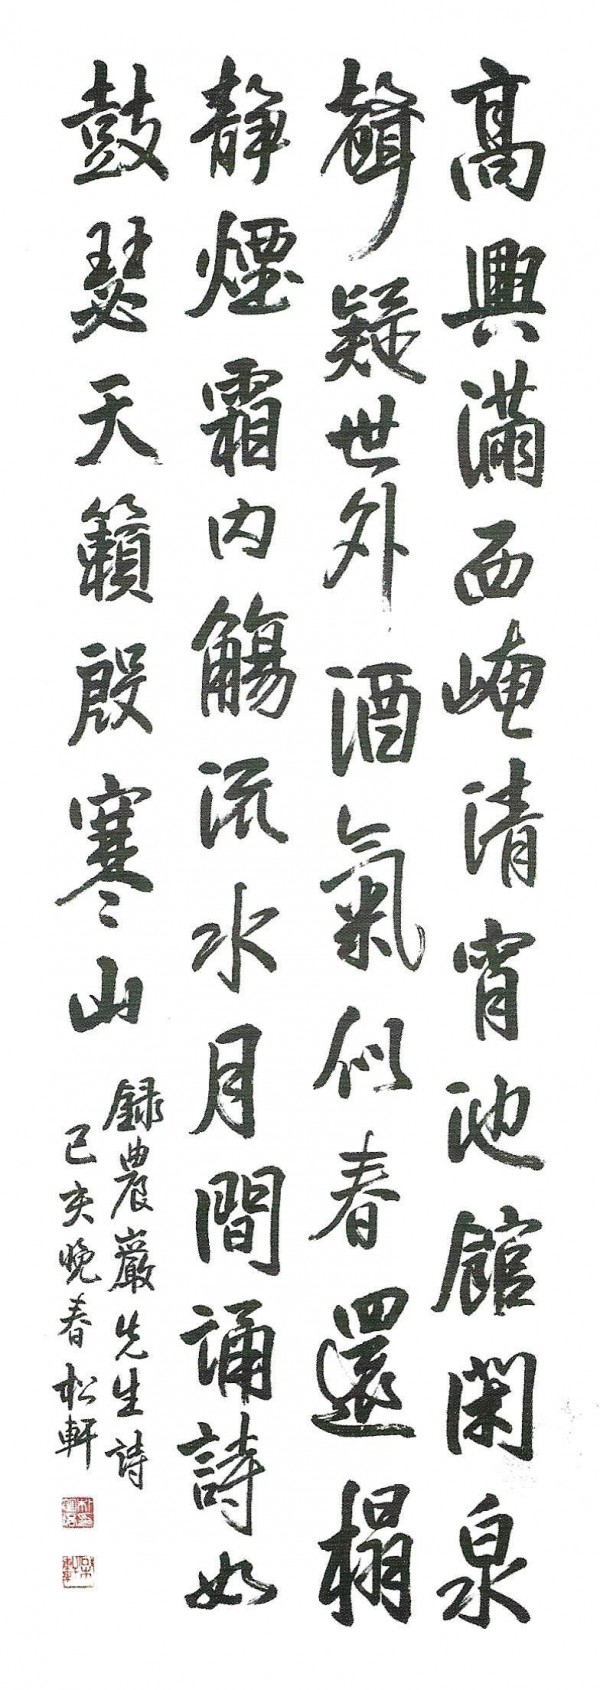 高興滿西崦清宵池館閑泉
聲疑世外酒氣似春還榻
靜煙霜內觴流水月間誦詩如
鼓瑟天籟殷寒山
錄農巖先生詩
己亥晚春松軒